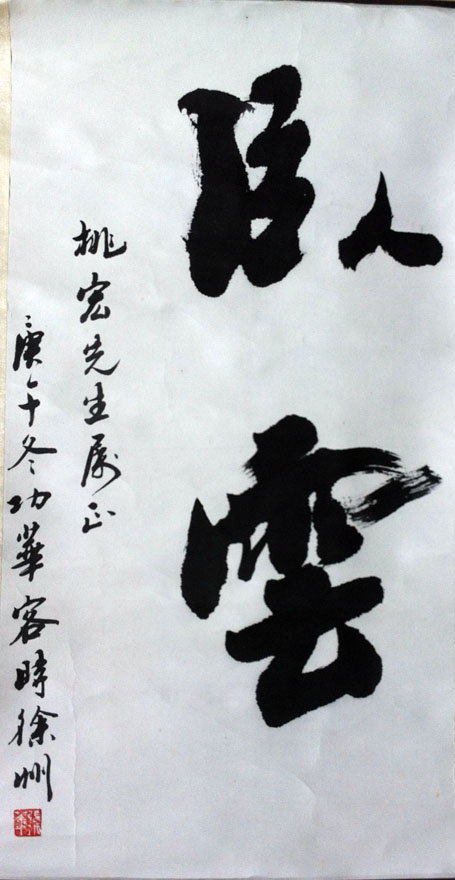 臥雲
桃宏先生屬正
庚午冬功華客時徐州